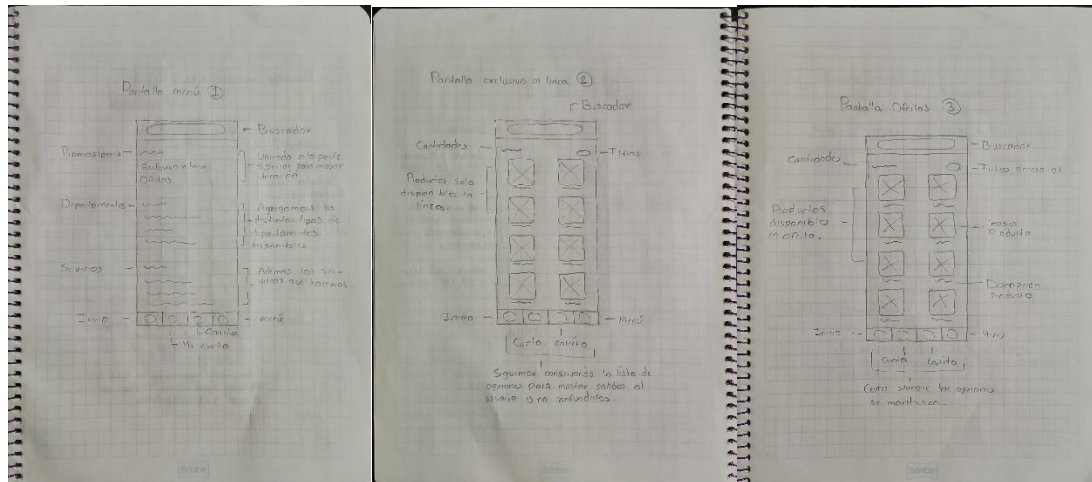 Pantalla menú 1
Buscador
Promociones
Exclusivo en linea
Ofertas
Departamentos
Agregamos los
distintos tipos de
disponibles
Servicios
Ademas los ser-
vicios que hacemos
Inicio
menú
Carrito
Mi cuenta
Pantalla exclusivo en linea 2
Buscador
Cantidades
Filtros
Productos solo
disponibles en
linea.
Inicio
Menú
Cuenta carrito
Seguimos conservando la lista de
opciones para mostrar salidas al
usuario y no confundirlos.
Pantalla Ofertas 3
Buscador
Cantidades
Filtro
Productos
disponibles
en oferta.
producto
Descripcion
producto
Inicio
Menú
Cuenta carrito
Como siempre las opciones
se mantienen.
Scribe
Scribe
Scribe